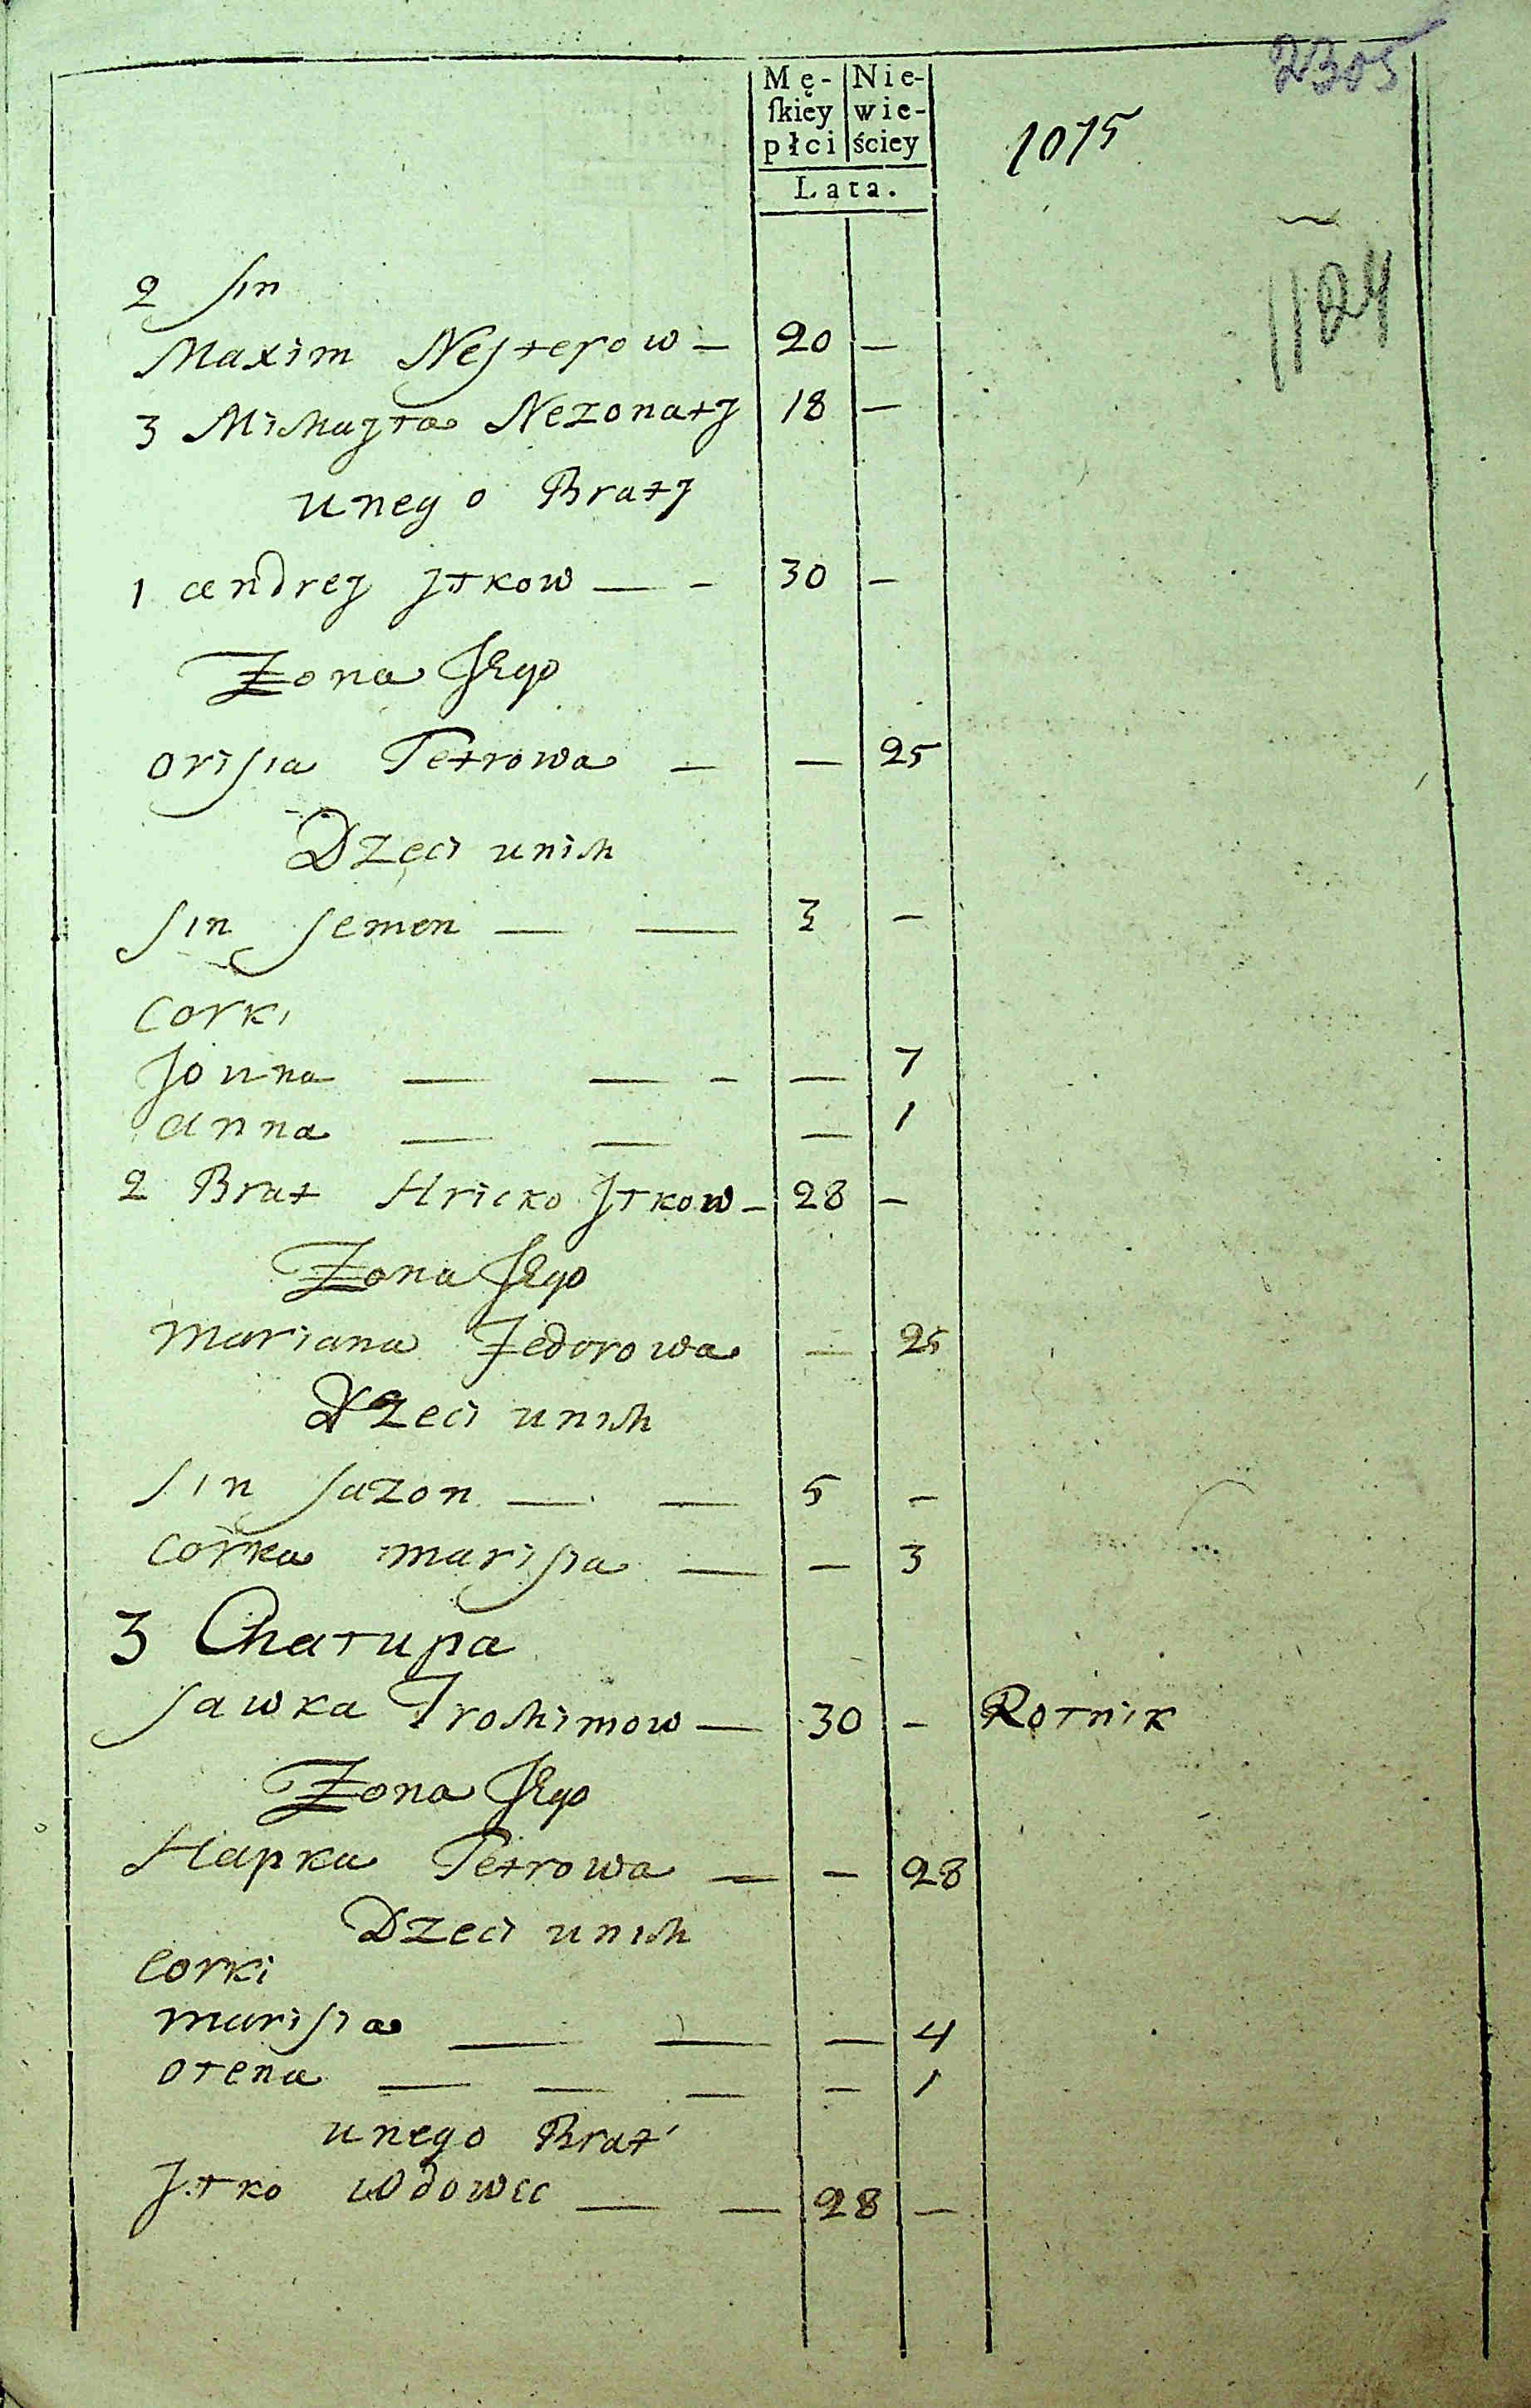 2305
Mę- Nie-
ſkiey wie-
płci ściey
Lata.
1075
1124
2 sin
Maxim Nesterow — 20 —
3 Michajła Nezonatj 18 —
unego Bratj
1 andrej Jłkow — - 30 —
Żona Jego
orisia Petrowa — — 25
Dzeci unich
sin semen — — 3 —
Corki
Jowna — — - — 7
anna — — — 1
2 Brat Hricko Jłkow - 28 —
Żona Jego
mariana Fedorowa — 25
Dzeci unich
sin sazon — — 5 —
corka marisia — — 3
3 Chałupa
sawka Trochimow — 30 — Rołnik
Żona Jego
Hapka Petrowa — — 28
Dzeci unich
corki
marisia — — — 4
ołena — — — — 1
unego Brat
Jłko wdowec — — 28 —